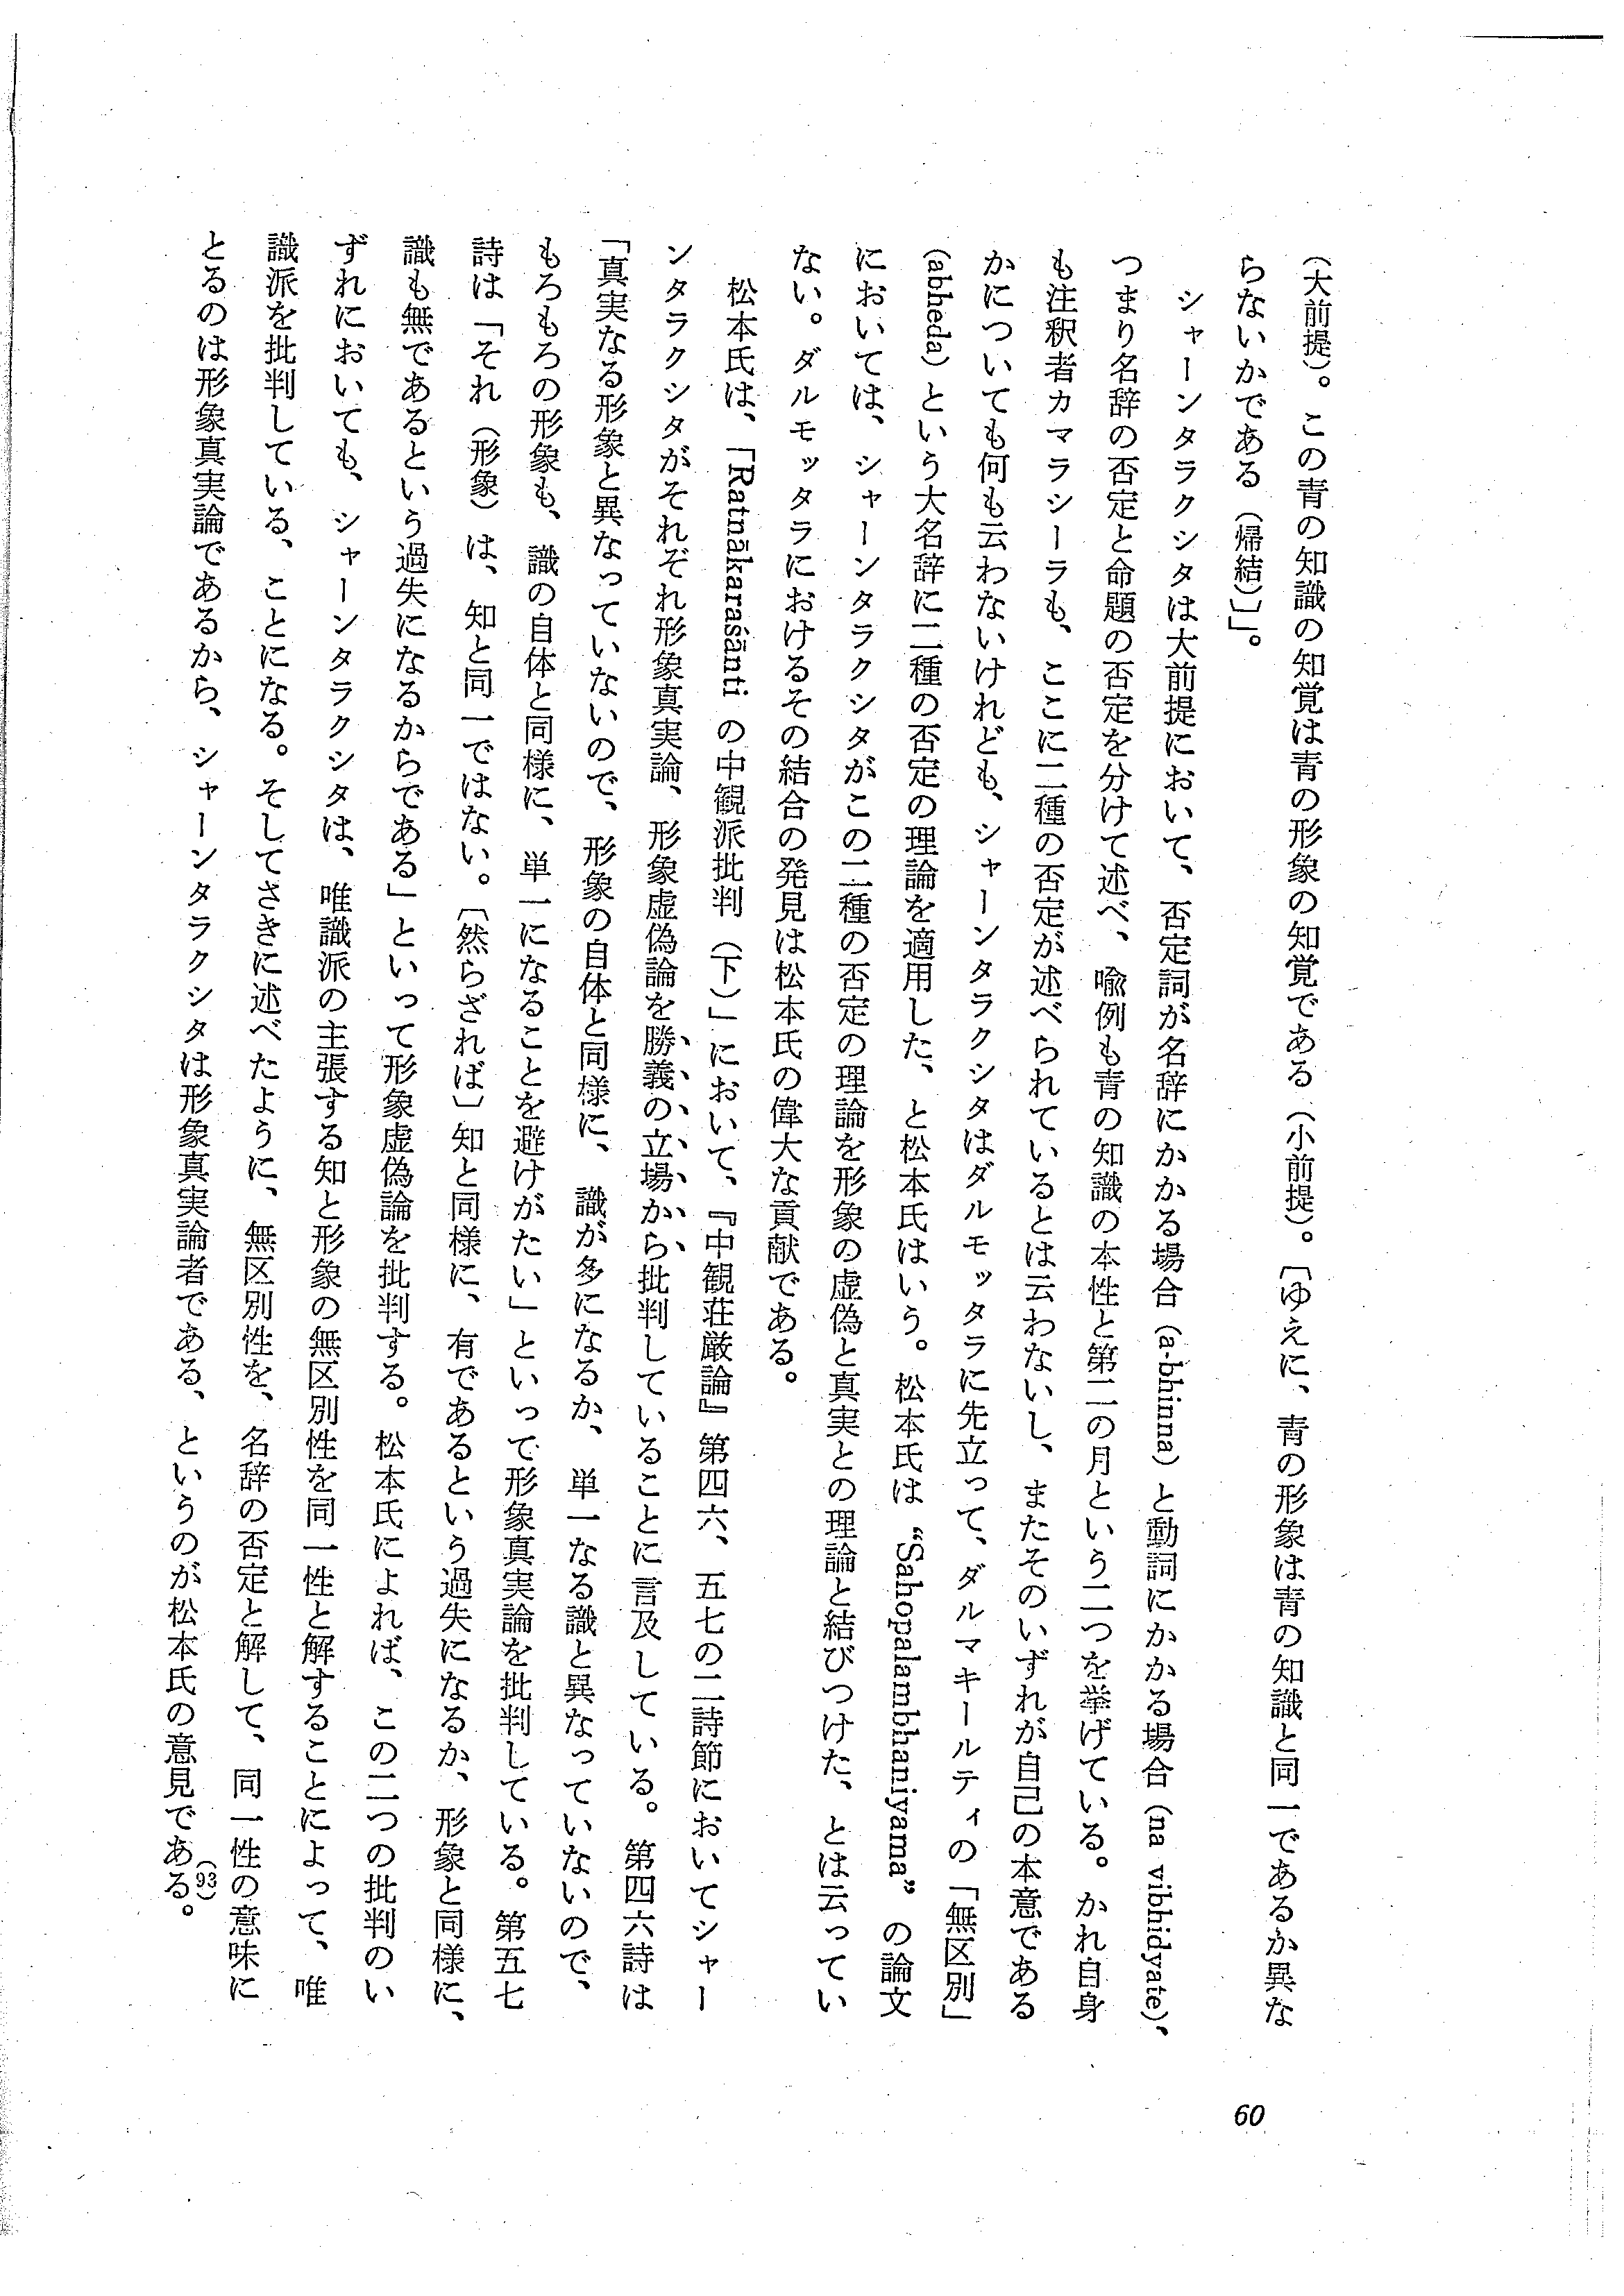 （大前提）。この青の知識の知覚は青の形象の知覚である（小前提）。〔ゆえに、青の形象は青の知識と同一であるか異な
らないかである（帰結）〕」。
シャーンタラクシタは大前提において、否定詞が名辞にかかる場合（a-bhinna）と動詞にかかる場合（na vibhidyate）、
つまり名辞の否定と命題の否定を分けて述べ、喩例も青の知識の本性と第二の月という二つを挙げている。かれ自身
も注釈者カマラシーラも、ここに二種の否定が述べられているとは云わないし、またそのいずれが自己の本意である
かについても何も云わないけれども、シャーンタラクシタはダルモッタラに先立って、ダルマキールティの「無区別」
（abheda）という大名辞に二種の否定の理論を適用した、と松本氏はいう。松本氏は “Sahopalambhaniyama” の論文
においては、シャーンタラクシタがこの二種の否定の理論を形象の虚偽と真実との理論と結びつけた、とは云ってい
ない。ダルモッタラにおけるその結合の発見は松本氏の偉大な貢献である。
松本氏は、「Ratnākaraśānti の中観派批判（下）」において、『中観荘厳論』第四六、五七の二詩節においてシャー
ンタラクシタがそれぞれ形象真実論、形象虚偽論を勝義の立場から批判していることに言及している。第四六詩は
「真実なる形象と異なっていないので、形象の自体と同様に、識が多になるか、単一なる識と異なっていないので、
もろもろの形象も、識の自体と同様に、単一になることを避けがたい」といって形象真実論を批判している。第五七
詩は「それ（形象）は、知と同一ではない。〔然らざれば〕知と同様に、有であるという過失になるか、形象と同様に、
識も無であるという過失になるからである」といって形象虚偽論を批判する。松本氏によれば、この二つの批判のい
ずれにおいても、シャーンタラクシタは、唯識派の主張する知と形象の無区別性を同一性と解することによって、唯
識派を批判している、ことになる。そしてさきに述べたように、無区別性を、名辞の否定と解して、同一性の意味に
とるのは形象真実論であるから、シャーンタラクシタは形象真実論者である、というのが松本氏の意見である。(93)
60